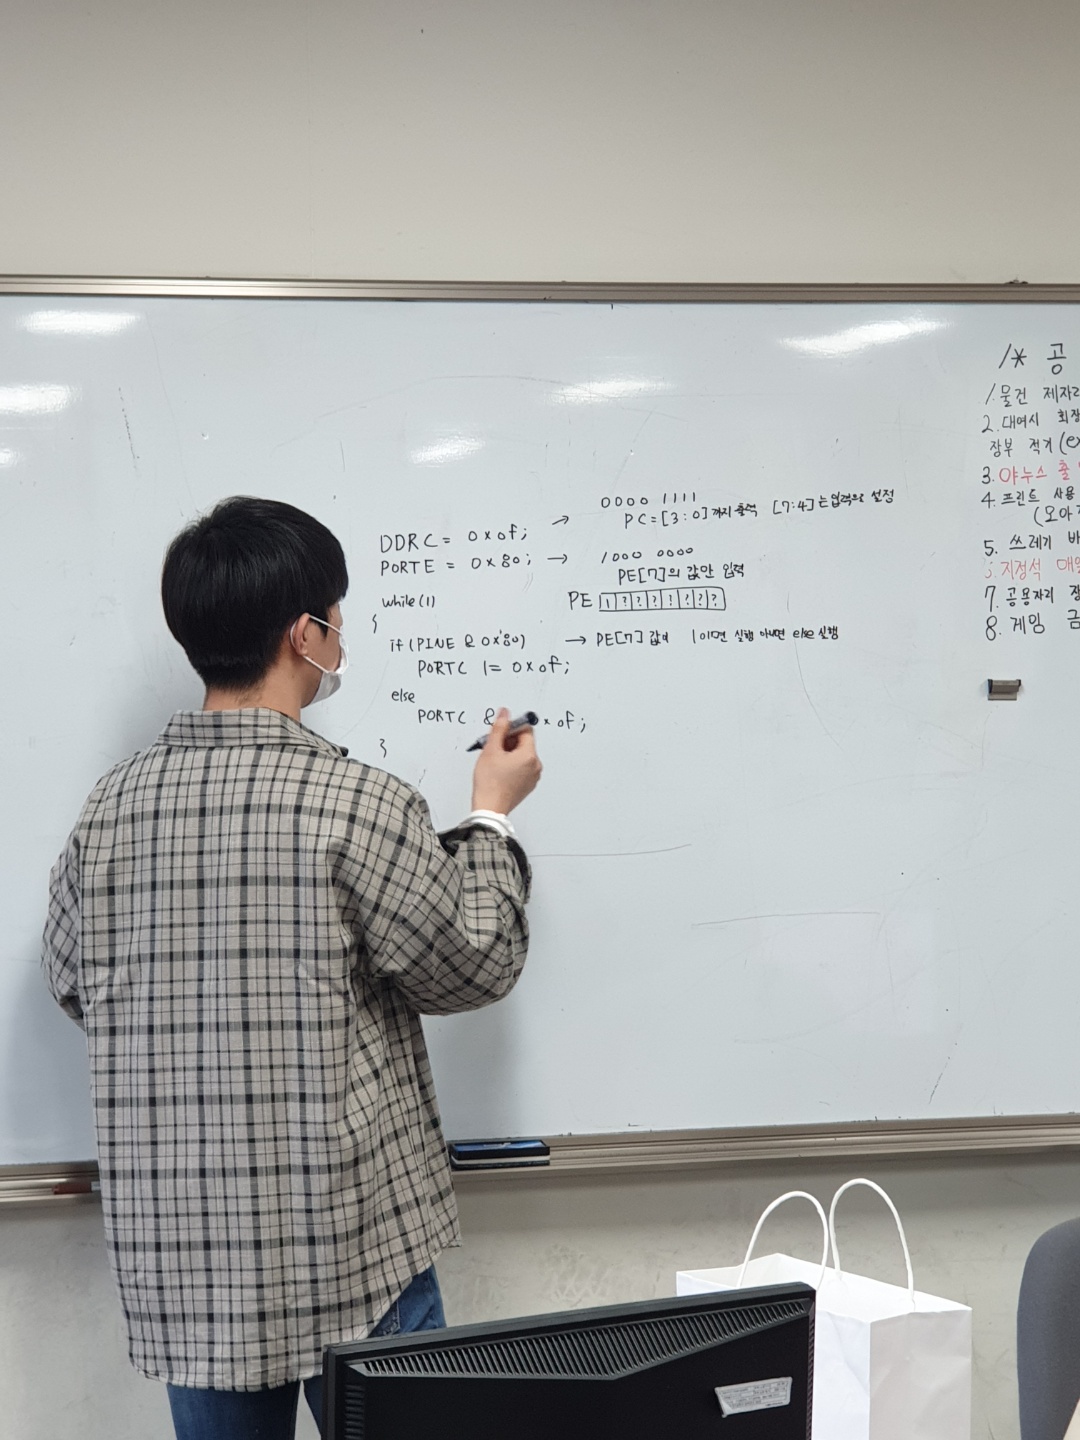 DDRC = 0x0f; → 0000 1111
PC=[3:0]까지 출력 [7:4]는 입력으로 설정
PORTE = 0x80; → 1000 0000
PE[7]의 값만 입력
while(1)
PE 1 ? ? ? ? ? ? ?
{
if(PINE & 0x80) → PE[7] 값이 1이면 실행 아니면 else 실행
PORTC |= 0x0f;
else
PORTC & 0x0f;
}
/* 공
1. 물건 제자리
2. 대여시 회장
장부 적기 (ex
3. 야누스 출
4. 프린트 사용
5. 쓰레기
지정석
7. 공용자리
8. 게임 금